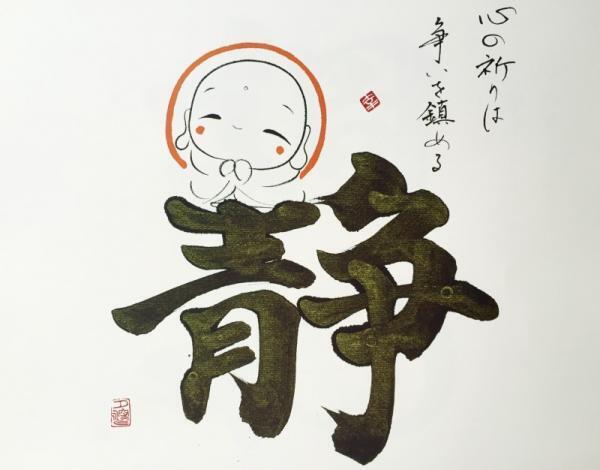 心の祈りは
争いを鎮める
静